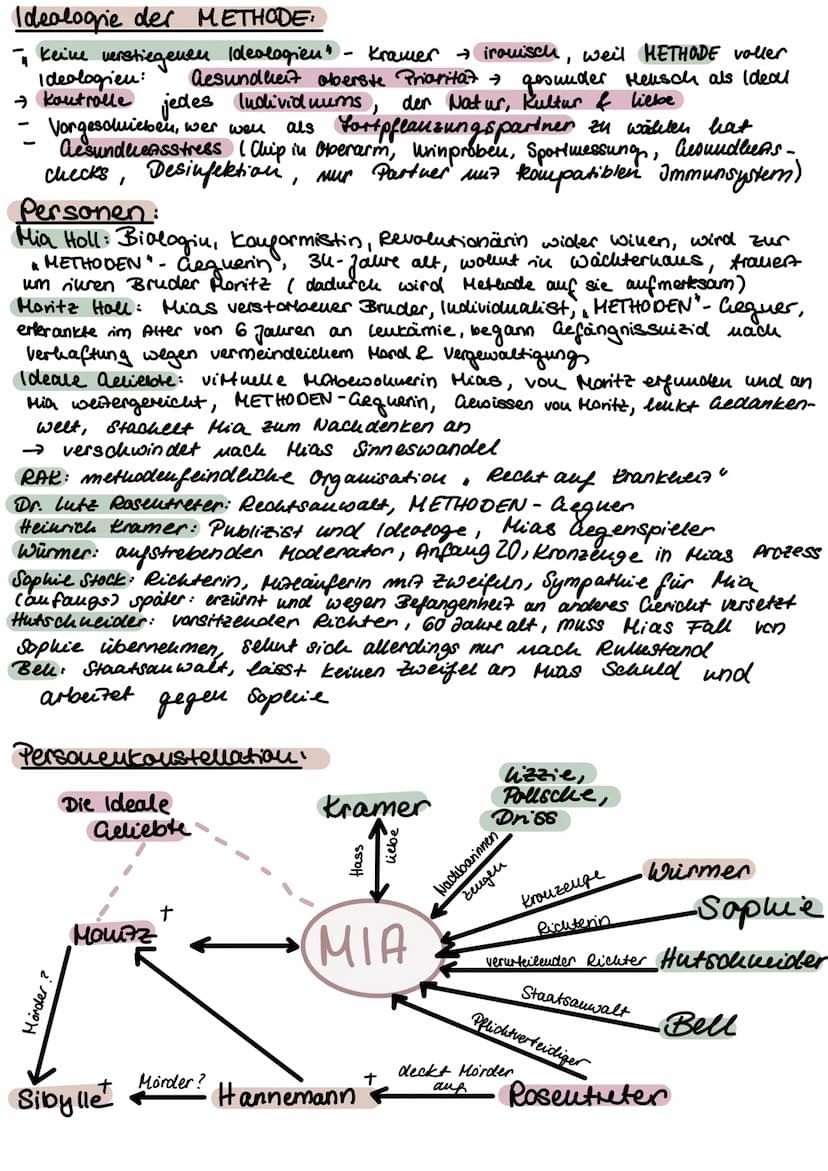 Ideologie der METHODE:
- "Keine verstiegenen Ideologien" - Kramer → ironisch, weil METHODE voller
Ideologien: Gesundheit oberste Priorität → gesunder Mensch als Ideal
→ Kontrolle jedes Individuums, der Natur, Kultur & Liebe
- Vorgeschrieben, wer wen als Fortpflanzungspartner zu wählen hat
- Gesundheitsstress (Chip in Oberarm, Urinproben, Sportmessung, Gesundheits-
checks, Desinfektion, nur Partner mit kompatiblen Immunsystem)
Personen:
Mia Holl: Biologin, Konformistin, Revolutionärin wider willen, wird zur
"METHODEN"-Gegnerin, 34-Jahre alt, wohnt in Wächterhaus, trauert
um ihren Bruder Moritz (dadurch wird Methode auf sie aufmerksam)
Moritz Holl: Mias verstorbener Bruder, Individualist, "METHODEN"-Gegner,
erkrankte im Alter von 6 Jahren an Leukämie, begann Gefängnissuizid nach
Verhaftung wegen vermeindlichem Mord & Vergewaltigung
Ideale Geliebte: virtuelle Mitbewohnerin Mias, von Moritz erfunden und an
Mia weitergereicht, METHODEN-Gegnerin, Gewissen von Moritz, lenkt Gedanken-
welt, stachelt Mia zum Nachdenken an
→ verschwindet nach Mias Sinneswandel
RAK: methodenfeindliche Organisation "Recht auf Krankheit"
Dr. Lutz Rosentreter: Rechtsanwalt, METHODEN-Gegner
Heinrich Kramer: Publizist und Ideologe, Mias Gegenspieler
Würmer: aufstrebenden Moderator, Anfang 20, Kronzeuge in Mias Prozess
Sophie Stock: Richterin, Mitläuferin mit Zweifeln, Sympathie für Mia
(anfangs) später: erzürnt und wegen Befangenheit an anderes Gericht versetzt
Hutschneider: vorsitzender Richter, 60 Jahre alt, muss Mias Fall von
Sophie übernehmen, sehnt sich allerdings nur nach Ruhestand
Bell: Staatsanwalt, lässt keinen Zweifel an Mias Schuld und
arbeitet gegen Sophie
Personenkonstellation:
Die Ideale
Geliebte
Kramer
Lizzie,
Pollsche,
Driss
Hass
Liebe
Nachbarinnen
zeugen
Kronzeuge
Würmer
Richterin
Sophie
Moritz +
MIA
verurteilender Richter
Hutschneider
Staatsanwalt
Bell
Pflichtverteidiger
Mörder?
Sibylle +
Mörder?
Hannemann +
deckt Mörder
auf
Rosentreter